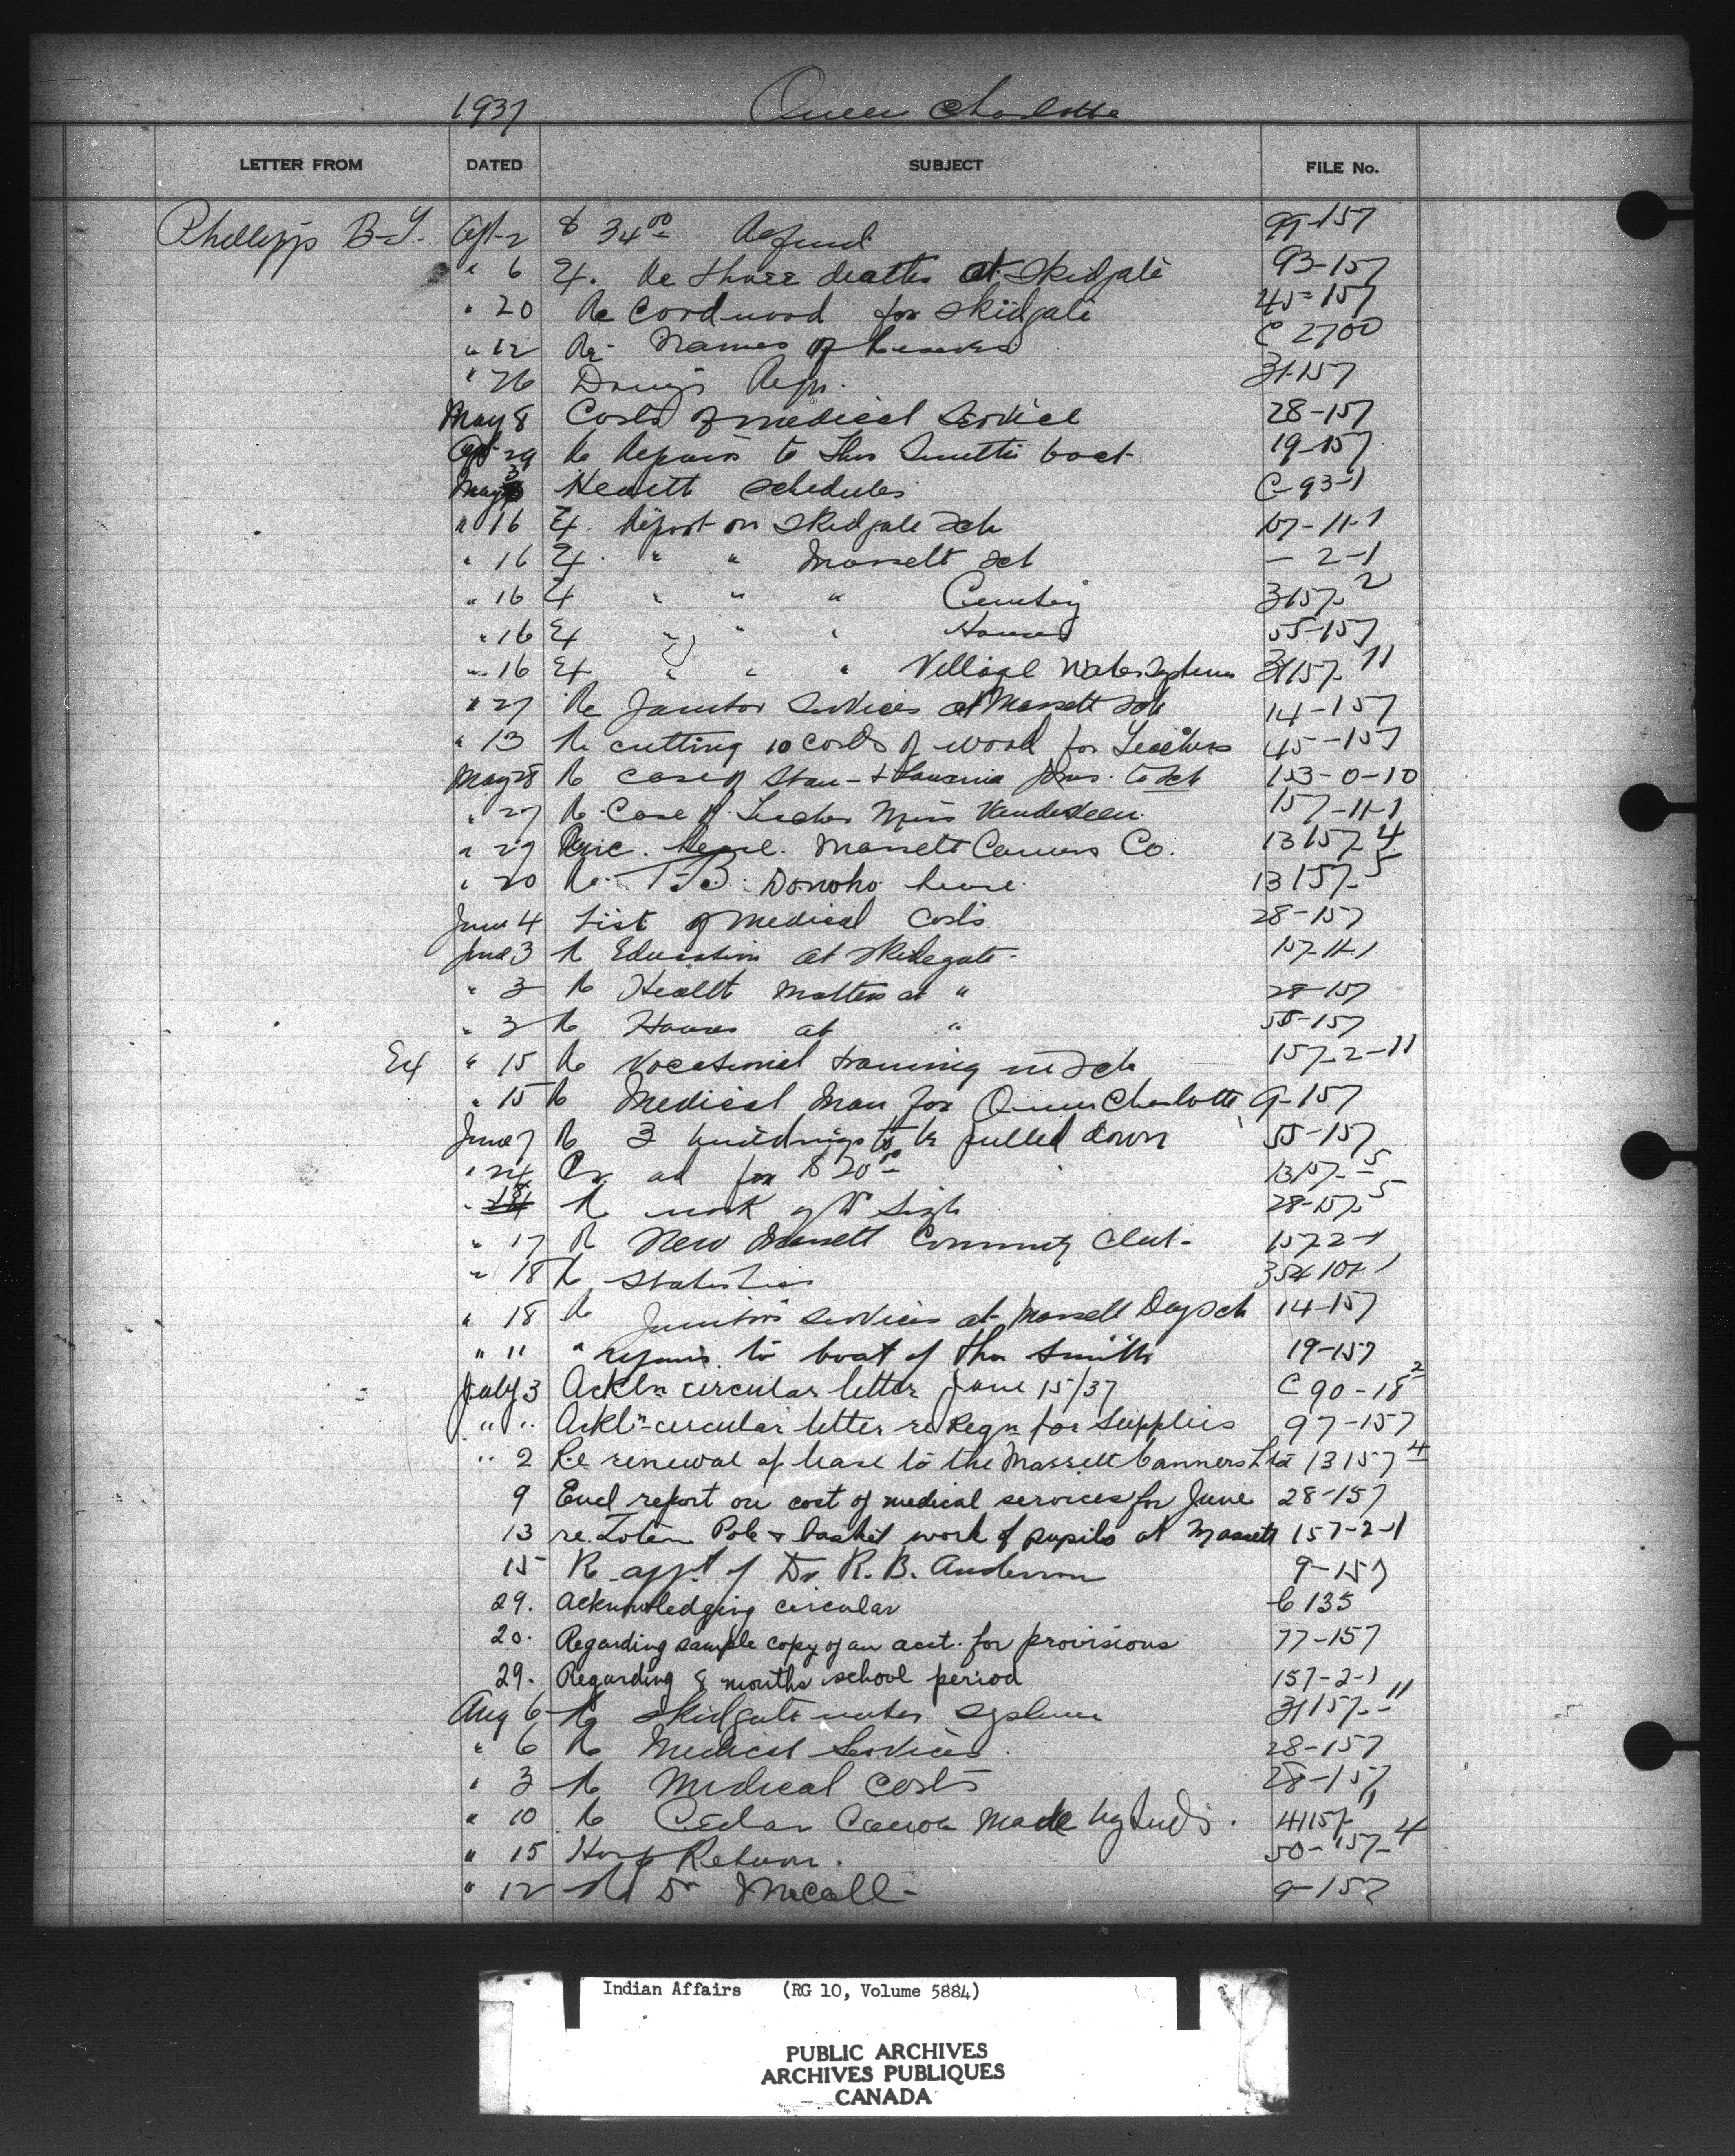 1937 Queen Charlotte
LETTER FROM DATED SUBJECT FILE No.
Phillipps B-Y. Apt-2 $ 34.00 Refund 99-157
" 6 Ex. Re three deaths at Skidgate 93-157
" 20 Re Cordwood for Skidgate 45-157
" 12 Re- Names of Reserves C 2700
" 26 Drugs Reqn. 31-157
May 8 Costs of medical Service 28-157
Apt-29 Re Repairs to Thos Smith's boat 19-157
May 3 Health schedules C-93-1
" 16 Ex. Report on Skidgate Sch 157-11-1
" 16 Ex. " " Massett Sch - 2-1
" 16 Ex " " " Cemetery 3157-2
" 16 Ex " " " Houses 55-157
" 16 Ex " " " Village Water Systems 31157-11
" 27 Re Janitor Services at Massett Sch 14-157
" 13 Re cutting 10 cords of wood for Teachers 45-157
May 28 Re case of Stan- & Jones. to Sch 153-0-10
" 27 Re Case of Teacher Miss Vanderveen. 157-11-1
" 29 lease. Massett Canners Co. 13157-4
" 20 Re. T.B. Donoho lease. 13157-5
June 4 List of Medical Costs 28-157
June 3 Re Education at Skidegate- 157-11-1
" 3 Re Health Matters at " 28-157
" 3 Re Houses at " 55-157
Ex " 15 Re Vocational training in Sch 157-2-11
" 15 Re Medical Man for Queen Charlotte 9-157
June 7 Re 3 buildings to be pulled down 55-157
" 24 for $20.00 13157-5
" 18 Re work of 28-157-5
" 17 Re New Massett Community Club- 157-2-1
" 18 Re Statistics
" 18 Re Janitors services at Massett Day Sch 14-157
" 11 " repairs to boat of Thos Smith 19-157
July 3 Ackln circular letter June 15/37 C 90-18 2
" " Ackln circular letter re Reqn for Supplies 97-157
" 2 Re renewal of lease to the Massett Canners Ltd 13157-4
9 Encl report on cost of medical services for June 28-157
13 re. Totem Pole & basket work of pupils at Massett 157-2-1
15 Re appt of Dr R. B. Anderson 9-157
29. Acknowledging circular C 135
20. Regarding sample copy of an acct. for provisions 77-157
29. Regarding 8 months school period 157-2-1
Aug 6 Re Skidgate water system 31157-11
" 6 Re Medical Services. 28-157
" 3 Re Medical Costs 28-157
" 10 Re Cedar Canoe Made by Inds. 41157-1
" 15 Hosp Return. 50-157-4
" 12 Re Dr McCall- 9-157
Indian Affairs (RG 10, Volume 5884)
PUBLIC ARCHIVES
ARCHIVES PUBLIQUES
CANADA